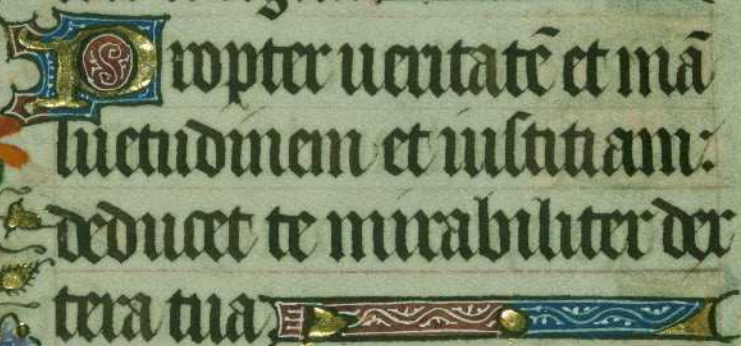 Propter ueritatē et mā
ſuetudinem et iuſtitiam:
deducet te mirabiliter dex
tera tua